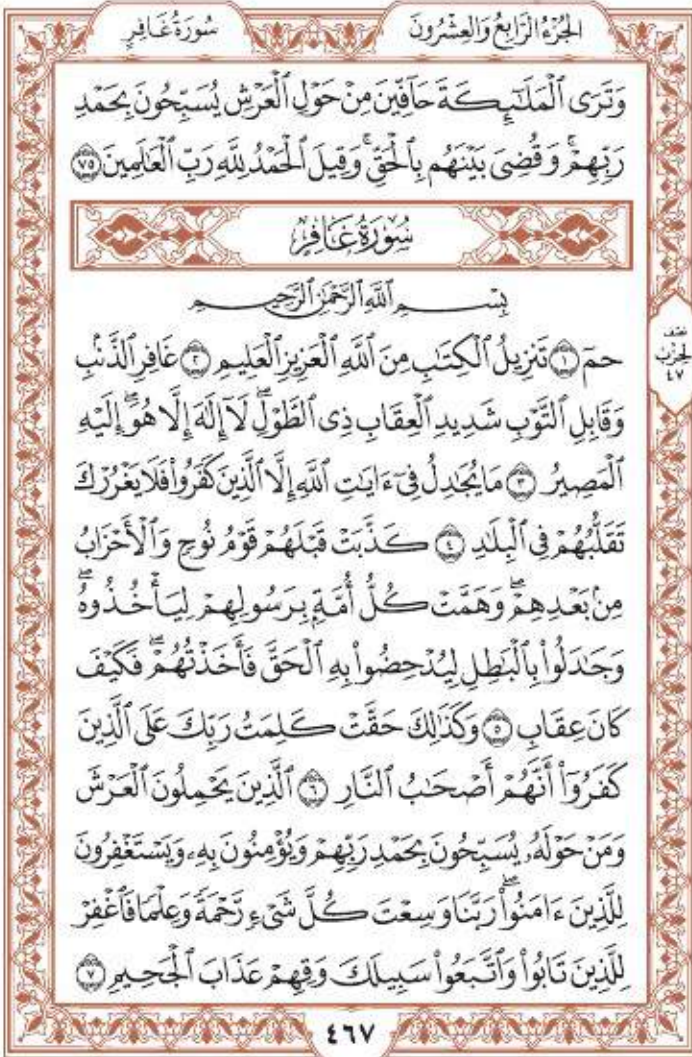 الجُزْءُ الرَّابِعُ وَالعِشْرُونَ
سُورَةُ غَافِرٍ
وَتَرَى ٱلْمَلَٰٓئِكَةَ حَآفِّينَ مِنْ حَوْلِ ٱلْعَرْشِ يُسَبِّحُونَ بِحَمْدِ
رَبِّهِمْۖ وَقُضِىَ بَيْنَهُم بِٱلْحَقِّۚ وَقِيلَ ٱلْحَمْدُ لِلَّهِ رَبِّ ٱلْعَٰلَمِينَ ٧٥
سُورَةُ غَافِرٍ
بِسْمِ ٱللَّهِ ٱلرَّحْمَٰنِ ٱلرَّحِيمِ
حمٓ ١ تَنزِيلُ ٱلْكِتَٰبِ مِنَ ٱللَّهِ ٱلْعَزِيزِ ٱلْعَلِيمِ ٢ غَافِرِ ٱلذَّنۢبِ
وَقَابِلِ ٱلتَّوْبِ شَدِيدِ ٱلْعِقَابِ ذِى ٱلطَّوْلِۖ لَآ إِلَٰهَ إِلَّا هُوَۖ إِلَيْهِ
ٱلْمَصِيرُ ٣ مَا يُجَٰدِلُ فِىٓ ءَايَٰتِ ٱللَّهِ إِلَّا ٱلَّذِينَ كَفَرُوا۟ فَلَا يَغْرُرْكَ
تَقَلُّبُهُمْ فِى ٱلْبِلَٰدِ ٤ كَذَّبَتْ قَبْلَهُمْ قَوْمُ نُوحٍ وَٱلْأَحْزَابُ
مِنۢ بَعْدِهِمْۖ وَهَمَّتْ كُلُّ أُمَّةٍۭ بِرَسُولِهِمْ لِيَأْخُذُوهُۖ
وَجَٰدَلُوا۟ بِٱلْبَٰطِلِ لِيُدْحِضُوا۟ بِهِ ٱلْحَقَّ فَأَخَذْتُهُمْۖ فَكَيْفَ
كَانَ عِقَابِ ٥ وَكَذَٰلِكَ حَقَّتْ كَلِمَتُ رَبِّكَ عَلَى ٱلَّذِينَ
كَفَرُوٓا۟ أَنَّهُمْ أَصْحَٰبُ ٱلنَّارِ ٦ ٱلَّذِينَ يَحْمِلُونَ ٱلْعَرْشَ
وَمَنْ حَوْلَهُۥ يُسَبِّحُونَ بِحَمْدِ رَبِّهِمْ وَيُؤْمِنُونَ بِهِۦ وَيَسْتَغْفِرُونَ
لِلَّذِينَ ءَامَنُوا۟ۖ رَبَّنَا وَسِعْتَ كُلَّ شَىْءٍ رَّحْمَةً وَعِلْمًا فَٱغْفِرْ
لِلَّذِينَ تَابُوا۟ وَٱتَّبَعُوا۟ سَبِيلَكَ وَقِهِمْ عَذَابَ ٱلْجَحِيمِ ٧
نصف
الحزب
٤٧
٤٦٧